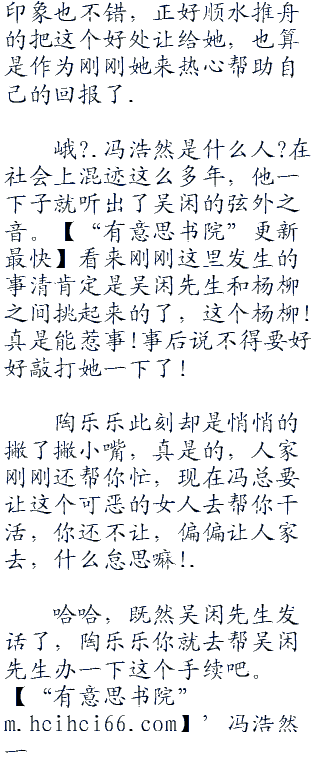 印象也不错，正好顺水推舟
的把这个好处让给她，也算
是作为刚刚她来热心帮助自
己的回报了.
峨?.冯浩然是什么人?在
社会上混迹这么多年，他一
下子就听出了吴闲的弦外之
音。【“有意思书院”更新
最快】看来刚刚这里发生的
事清肯定是吴闲先生和杨柳
之间挑起来的了，这个杨柳!
真是能惹事!事后说不得要好
好敲打她一下了!
陶乐乐此刻却是悄悄的
撇了撇小嘴，真是的，人家
刚刚还帮你忙，现在冯总要
让这个可恶的女人去帮你干
活，你还不让，偏偏让人家
去，什么怠思嘛!.
哈哈，既然吴闲先生发
话了，陶乐乐你就去帮吴闲
先生办一下这个手续吧。
【“有意思书院”
m.hcihci66.com】’冯浩然
一